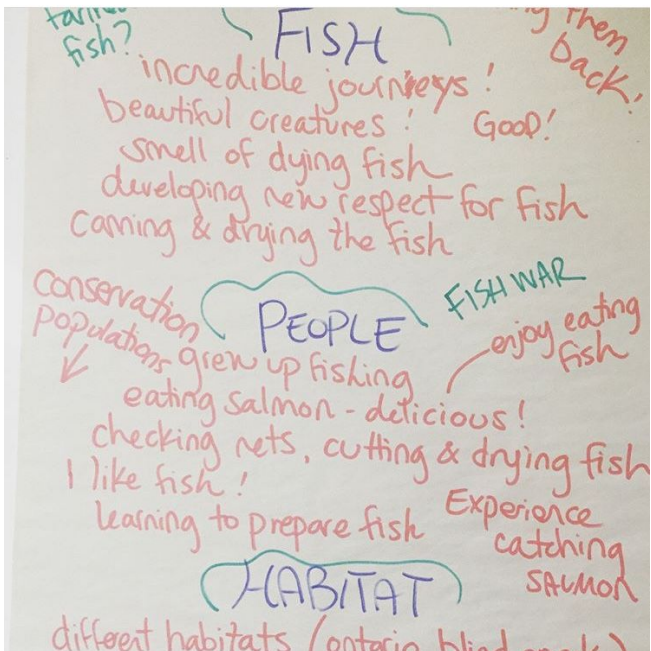 fish?
FISH
them
back!
incredible journeys!
beautiful creatures!
Good!
smell of dying fish
developing new respect for fish
canning & drying the fish
conservation
populations
PEOPLE
FISH WAR
enjoy eating
fish
grew up fishing
eating salmon - delicious!
checking nets, cutting & drying fish
I like fish!
learning to prepare fish
Experience
catching
SALMON
HABITAT
different habitats (ontario